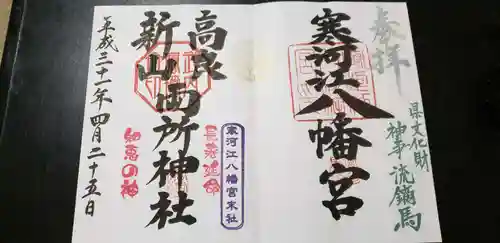 奉拝
県文化財
神事流鏑馬
寒河江八幡宮
高良
新山両所神社
寒河江八幡宮末社
長寿延命
知恵の神
平成三十一年四月二十五日